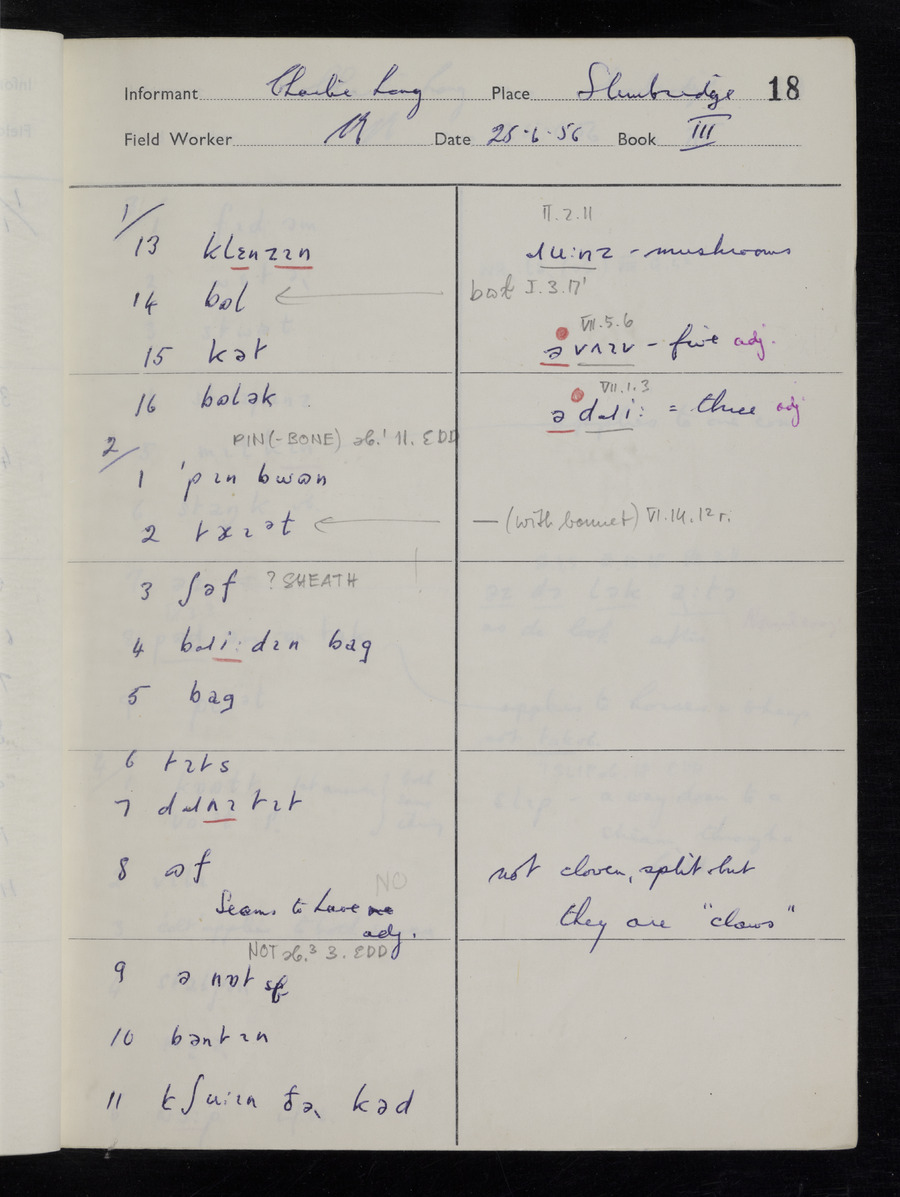 Informant Charlie Long Place Slimbridge 18
Field Worker Date 25·6·56 Book III
1/
13 klɛnzɪn
14 bɒl
15 kət
16 bɒlək
2/ PIN(-BONE) sb.¹ 11. EDD
1 ˈpɪn bwɒn
2
3 ʃəf ? SHEATH
4 bɹiːdɪn bag
5 bag
6 tɪts
7
8 ɒf
NO
Seems to have no
adj.
NOT sb.³ 3. EDD
9 ə nɒt
10 bəntɪn
11 kʃuːɪn ðə kəd
II.2.11
– mushrooms
bɒt I.3.17'
VII.5.6
ə vʌɪv – five adj.
VII.1.3
ə dɹiː = three adj
— (with bonnet) VI.14.12 r.
not cloven, split but
they are "claws"